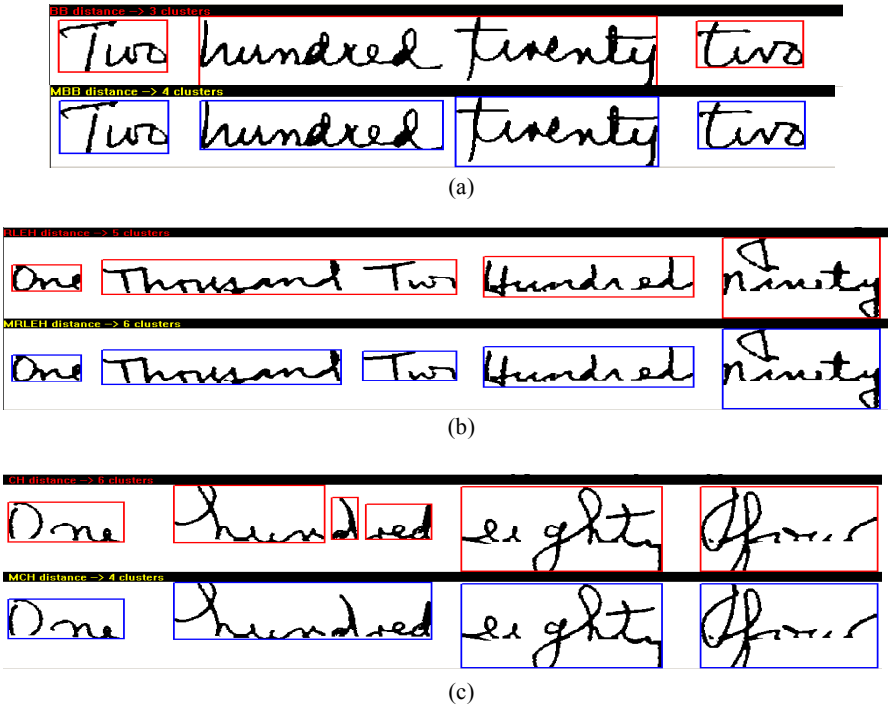 BB distance --> 3 clusters
Two hundred twenty two
MBB distance --> 4 clusters
Two hundred twenty two
(a)
RLEH distance --> 5 clusters
One Thousand Two Hundred Ninety
MRLEH distance --> 6 clusters
One Thousand Two Hundred Ninety
(b)
CH distance --> 6 clusters
One hundred eighty four
MCH distance --> 4 clusters
One hundred eighty four
(c)